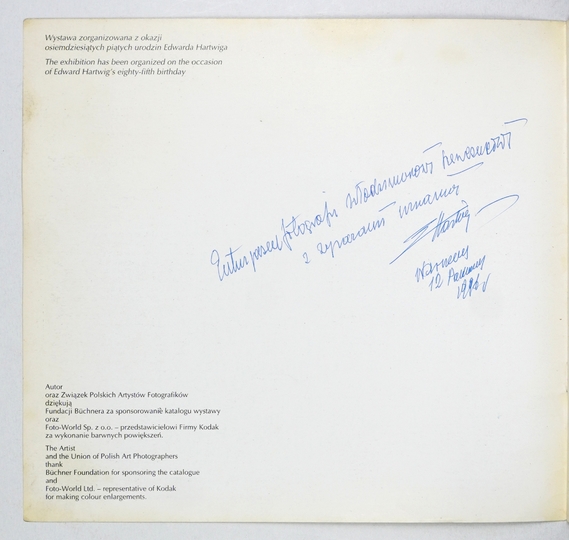 Wystawa zorganizowana z okazji
osiemdziesiątych piątych urodzin Edwarda Hartwiga
The exhibition has been organized on the occasion
of Edward Hartwig's eighty-fifth birthday
fotografii
z wyrazami uznania
E Hartwig
12
Autor
oraz Związek Polskich Artystów Fotografików
dziękują
Fundacji Büchnera za sponsorowanie katalogu wystawy
oraz
Foto-World Sp. z o.o. – przedstawicielowi Firmy Kodak
za wykonanie barwnych powiększeń.
The Artist
and the Union of Polish Art Photographers
thank
Büchner Foundation for sponsoring the catalogue
and
Foto-World Ltd. – representative of Kodak
for making colour enlargements.